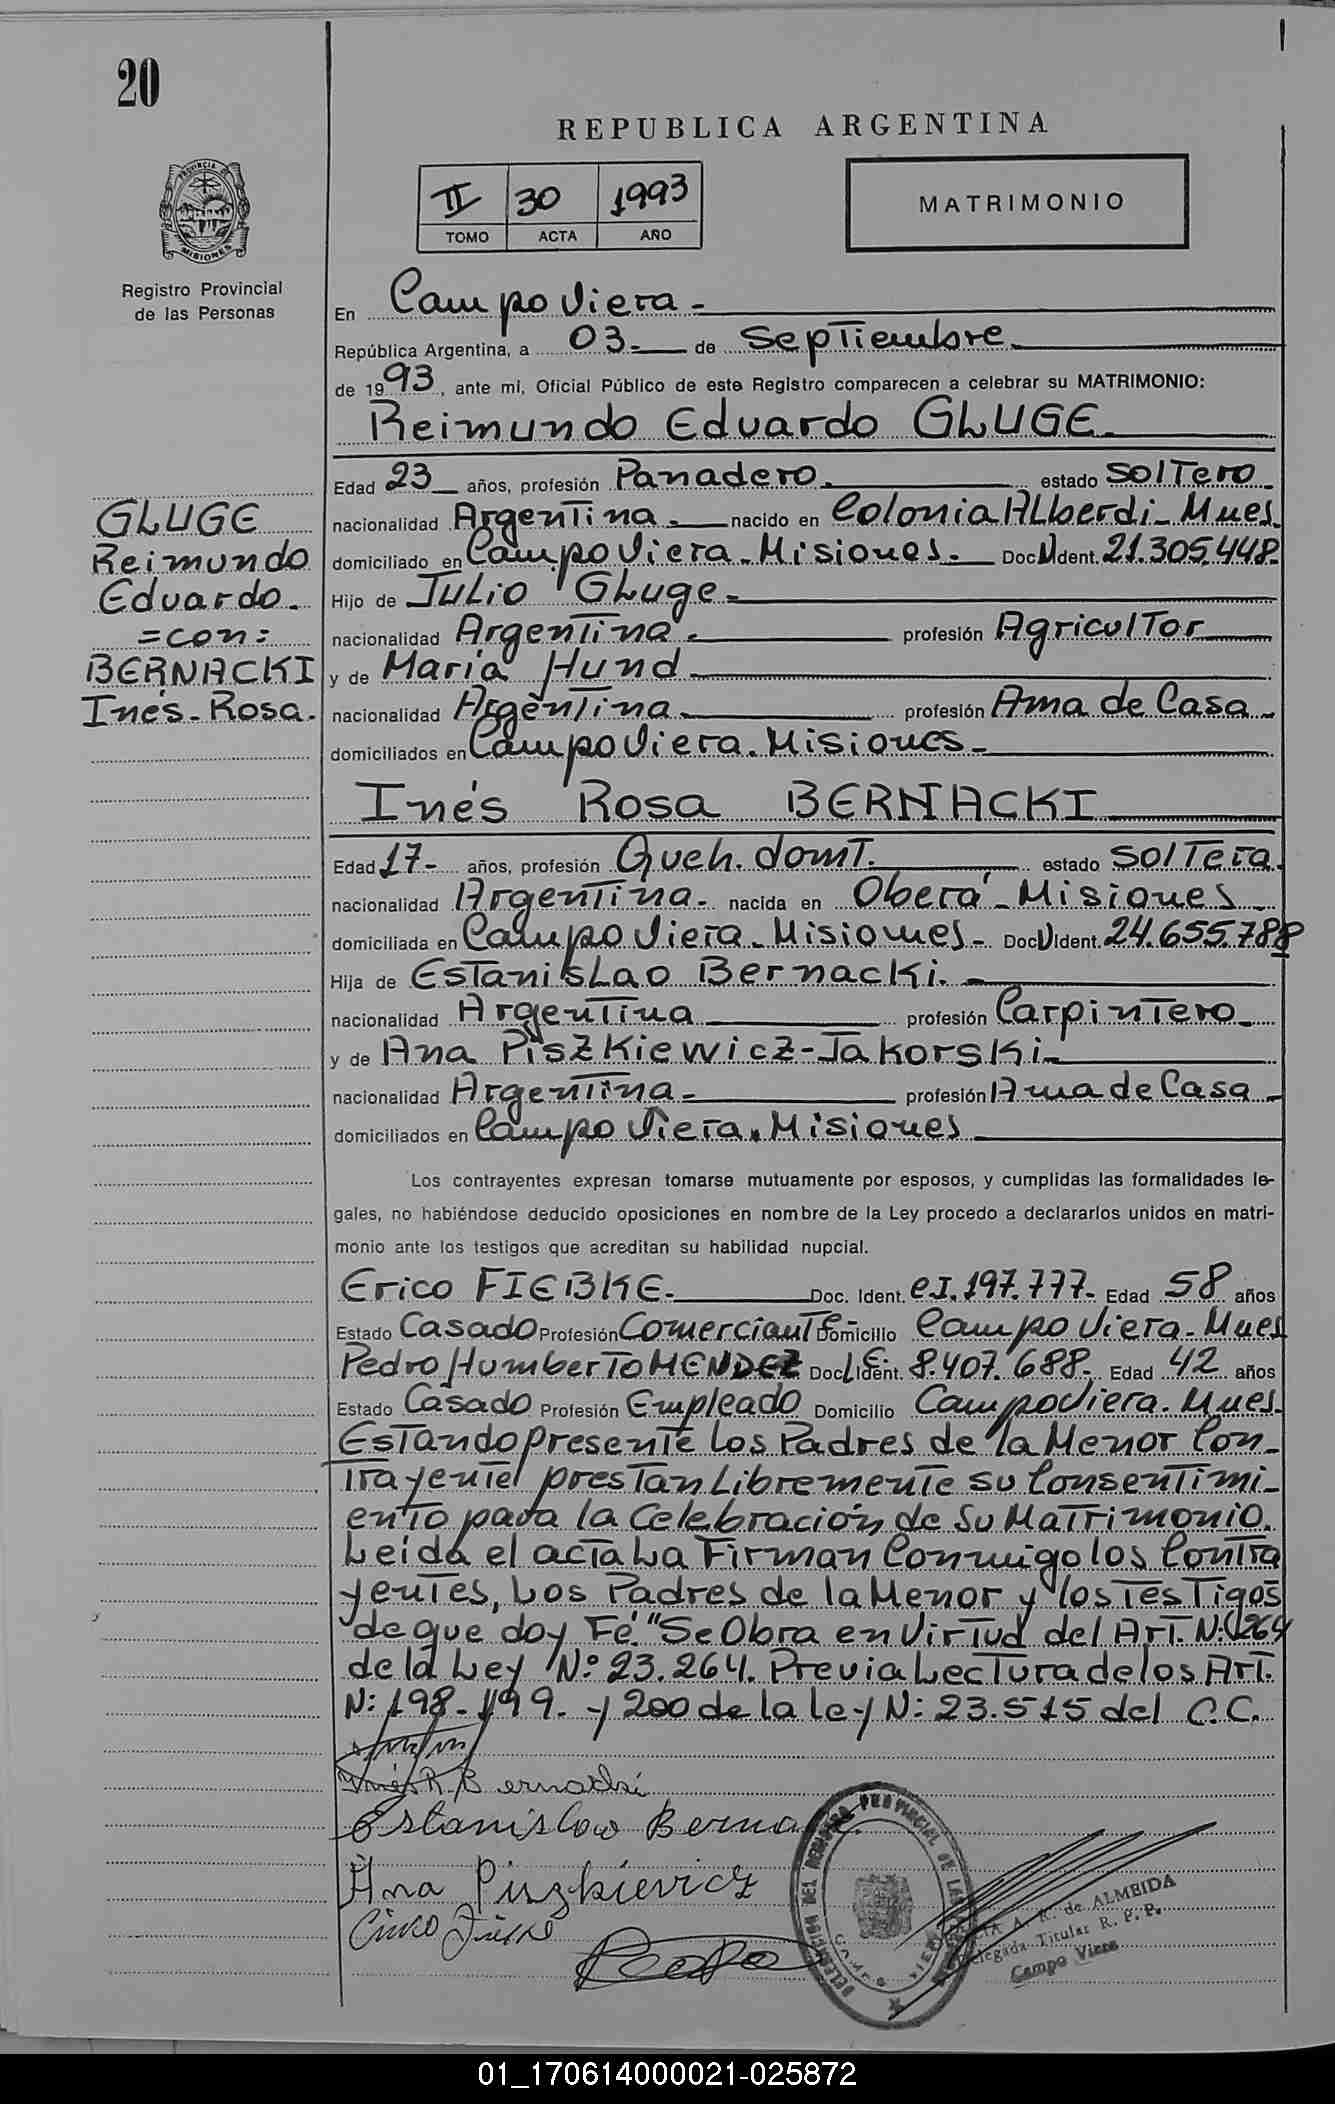 20
REPUBLICA ARGENTINA
II 30 1993
TOMO ACTA AÑO
MATRIMONIO
PROVINCIA DE
MISIONES
Registro Provincial
de las Personas
En Campo Viera -
República Argentina, a 03. de Septiembre
de 1993, ante mi, Oficial Público de este Registro comparecen a celebrar su MATRIMONIO:
Reimundo Eduardo GLUGE
Edad 23 años, profesión Panadero. estado Soltero
nacionalidad Argentina. nacido en Colonia ALberdi - Mnes.
domiciliado en Campo Viera - Misiones. Doc.N.Ident. 21.305.448-
Hijo de Julio Gluge -
nacionalidad Argentina. profesión Agricultor
y de María Hund
nacionalidad Argentina profesión Ama de Casa
domiciliados en Campo Viera. Misiones -
GLUGE
Reimundo
Eduardo.
= con =
BERNACKI
Inés - Rosa.
Inés Rosa BERNACKI
Edad 17- años, profesión Queh. domt. estado Soltera.
nacionalidad Argentina. nacida en Oberá - Misiones
domiciliada en Campo Viera - Misiones - Doc.N.Ident. 24.655.788
Hija de Estanislao Bernacki.
nacionalidad Argentina profesión Carpintero
y de Ana Piszkiewicz - Jakorski
nacionalidad Argentina - profesión Ama de Casa
domiciliados en Campo Viera. Misiones
Los contrayentes expresan tomarse mutuamente por esposos, y cumplidas las formalidades le-
gales, no habiéndose deducido oposiciones en nombre de la Ley procedo a declararlos unidos en matri-
monio ante los testigos que acreditan su habilidad nupcial.
Erico FIEBKE. Doc. Ident. C.I. 197.777- Edad 58 años
Estado Casado Profesión Comerciante - Domicilio Campo Viera - Mnes
Pedro Humberto MENDEZ Doc.L.E.Ident. 8.407.688- Edad 42 años
Estado Casado Profesión Empleado Domicilio Campo Viera. Mnes.
Estando presente Los Padres de la Menor Con-
trayente prestan Libremente su Consentimi-
ento para la Celebración de Su Matrimonio.
Leida el acta La Firman Conmigo los Contra
yentes, Los Padres de la Menor y los Testigos
de que doy Fé. "Se Obra en Virtud del Art. N: 264
de la Ley Nº 23.264. Previa Lectura de los Art.
N: 198-199- y 200 de la ley N: 23.515 del C.C.
Inés R. Bernacki
Estanislao Bernacki
Ana Piszkievicz
DELEGACION DEL REGISTRO PROVINCIAL DE LAS
CAMPO VIERA
A. R. de ALMEIDA
Delegada Titular R. P. P.
Campo Viera
01_170614000021-025872